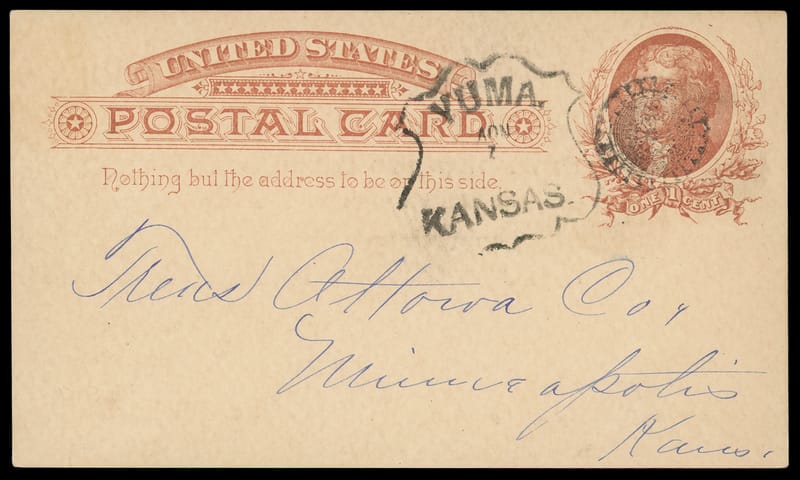 UNITED STATES
POSTAL CARD
Nothing but the address to be on this side.
ONE 1 CENT
YUMA.
NOV
7
KANSAS.
Treas Ottowa Co,
Minneapolis
Kans.